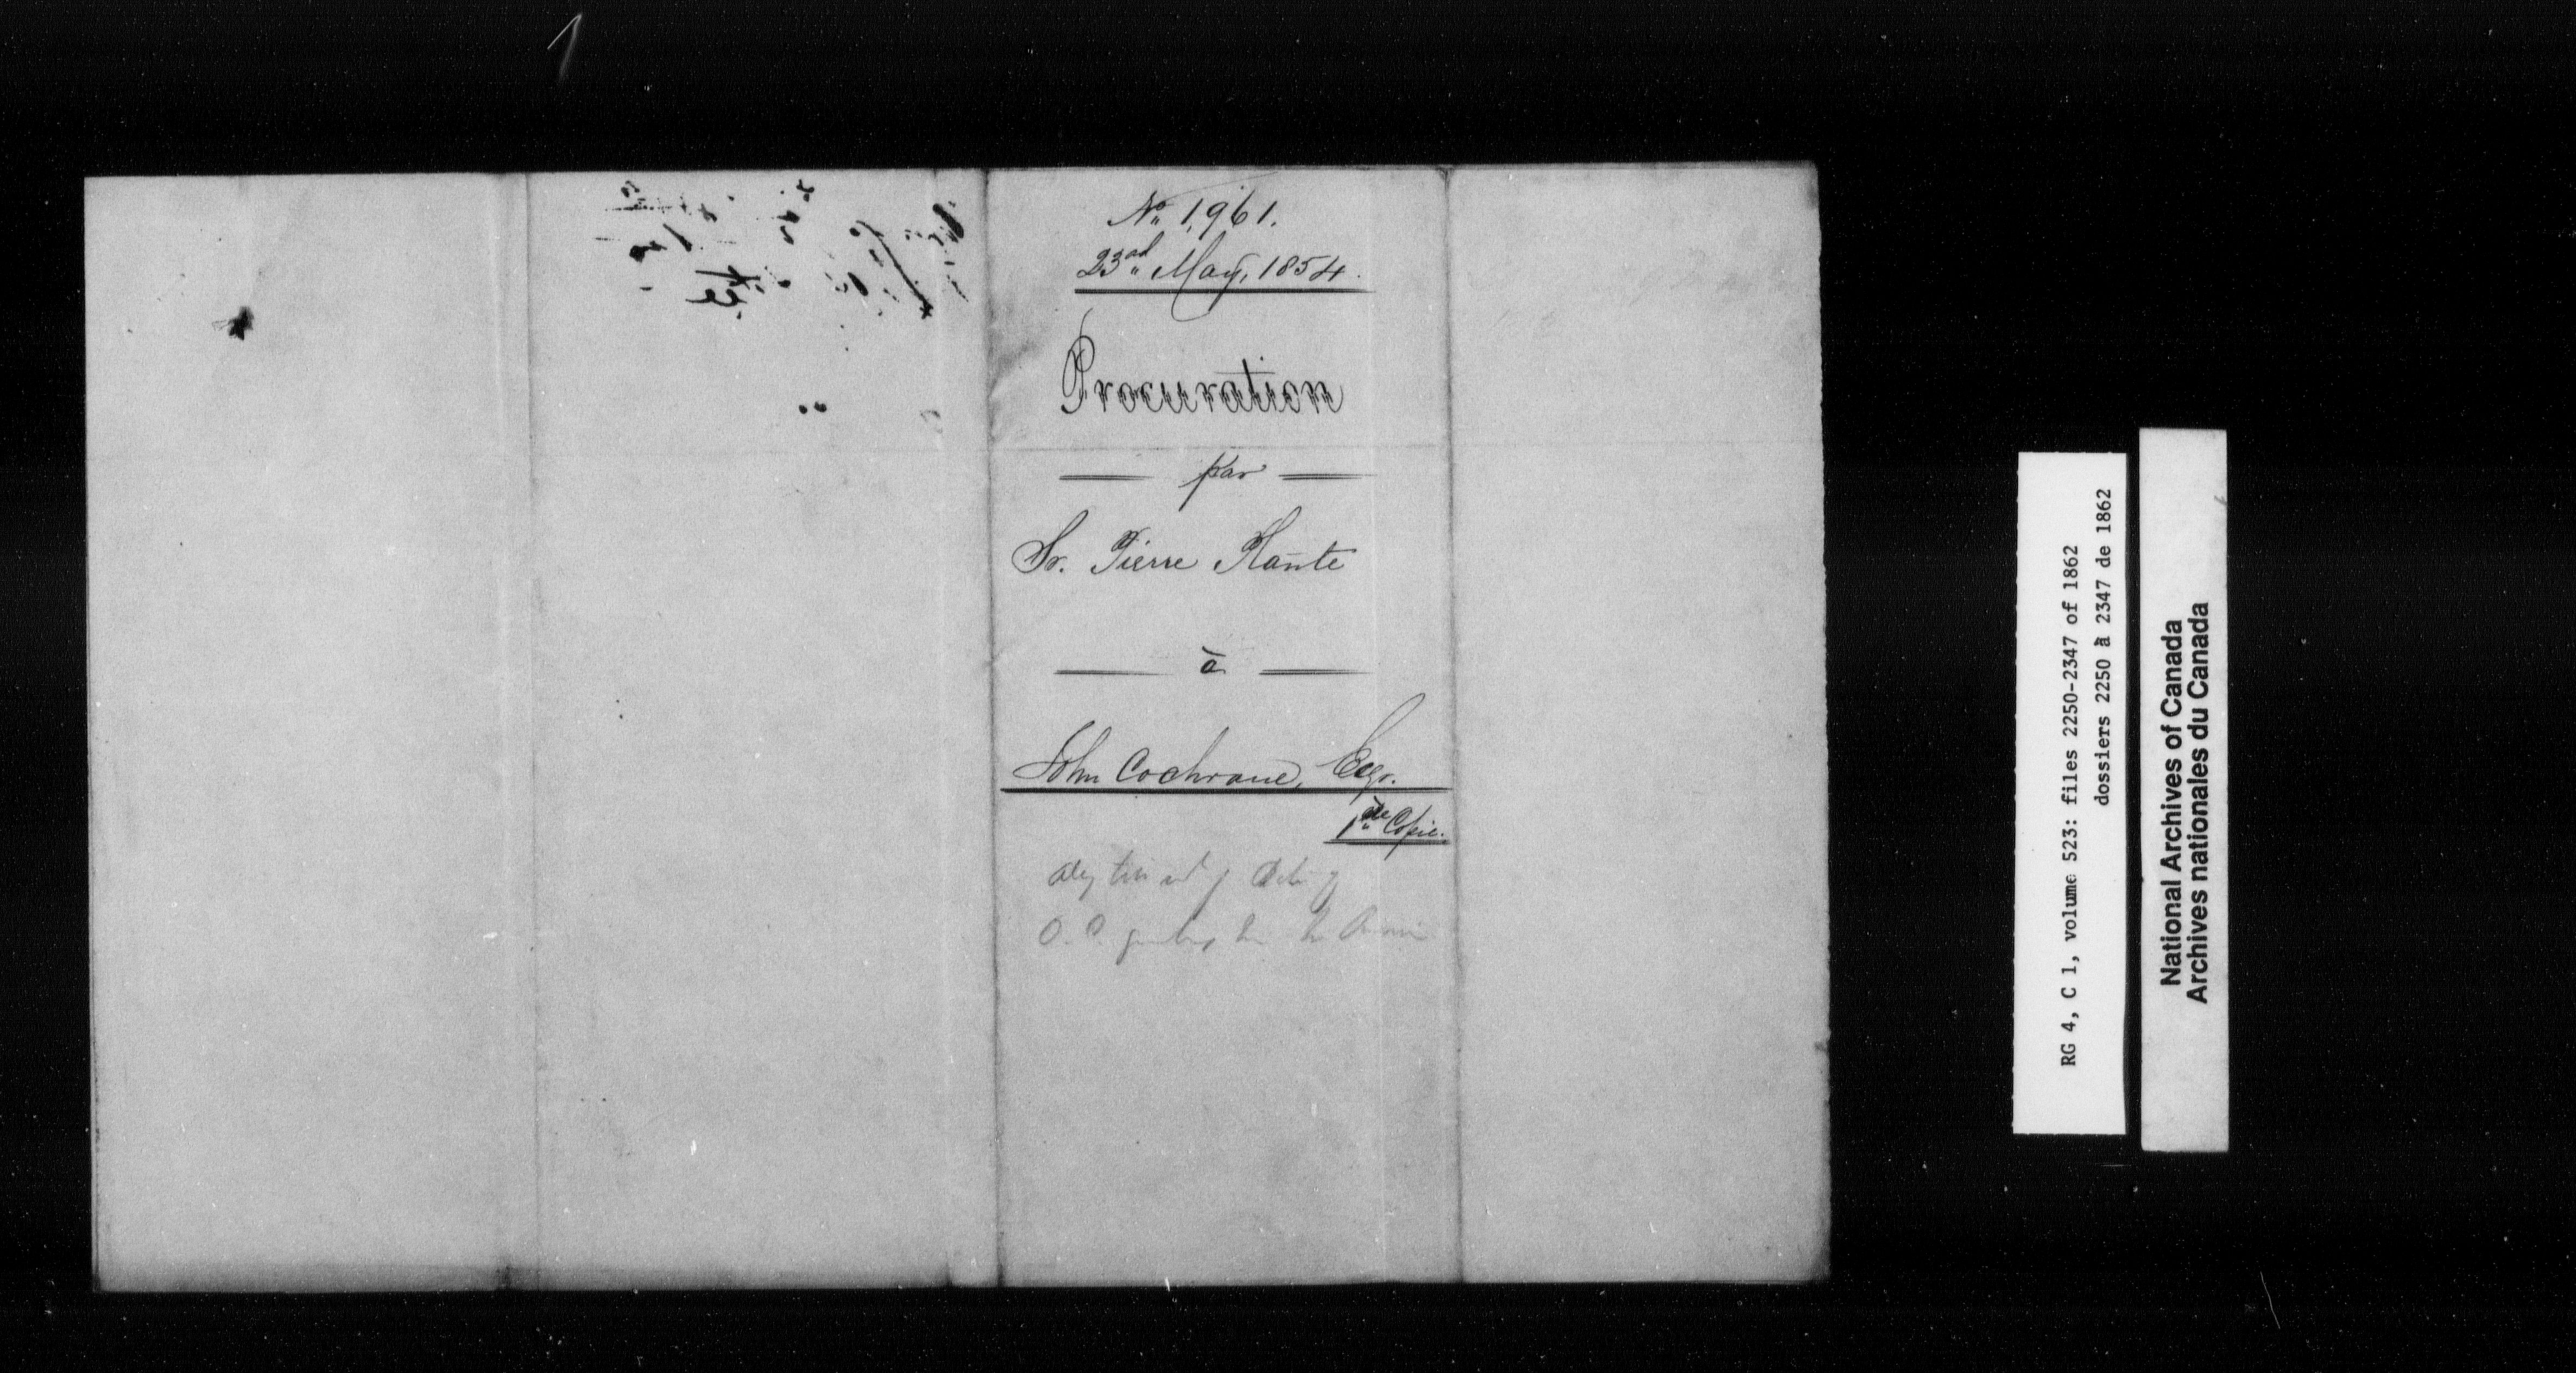 No. 1,961.
23rd May, 1854.
Procuration
par
Sr. Pierre Plante
à
John Cochrane, Esqr.
1ère Copie.
O. C.
RG 4, C 1, volume 523: files 2250-2347 of 1862
dossiers 2250 à 2347 de 1862
National Archives of Canada
Archives nationales du Canada